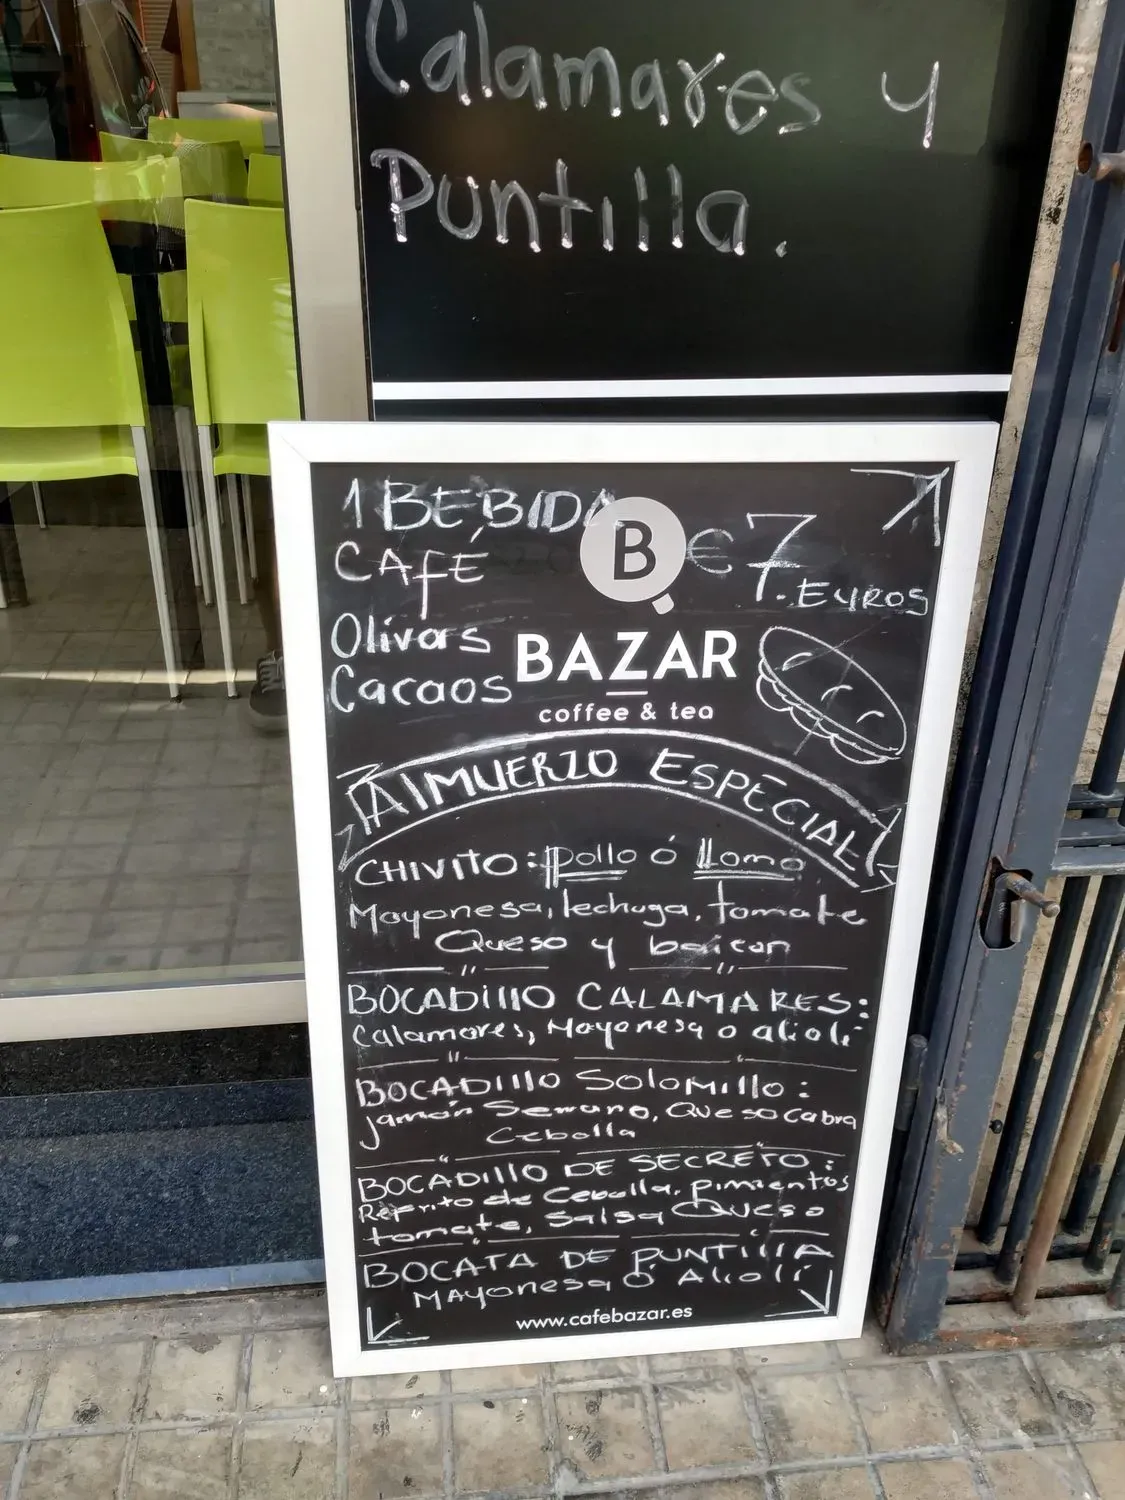 Calamares y
Puntilla.
1 BEBIDA
CAFÉ
Olivas
Cacaos
€7.EUROS
B
BAZAR
coffee & tea
AlMUERZO ESPECIAL
CHIVITO: Pollo ó Lomo
Mayonesa, lechuga, tomate
Queso y baicon
BOCADillO CALAMARES:
Calamares, Mayonesa o alioli
BOCADIllO SOLOMillO:
jamón Serrano, Queso Cabra
Cebolla
BOCADIllO DE SECRETO:
Refrito de Cebolla, pimientos
tomate, Salsa Queso
BOCATA DE PUNTIllA
MAyonesa Ó Alioli
www.cafebazar.es